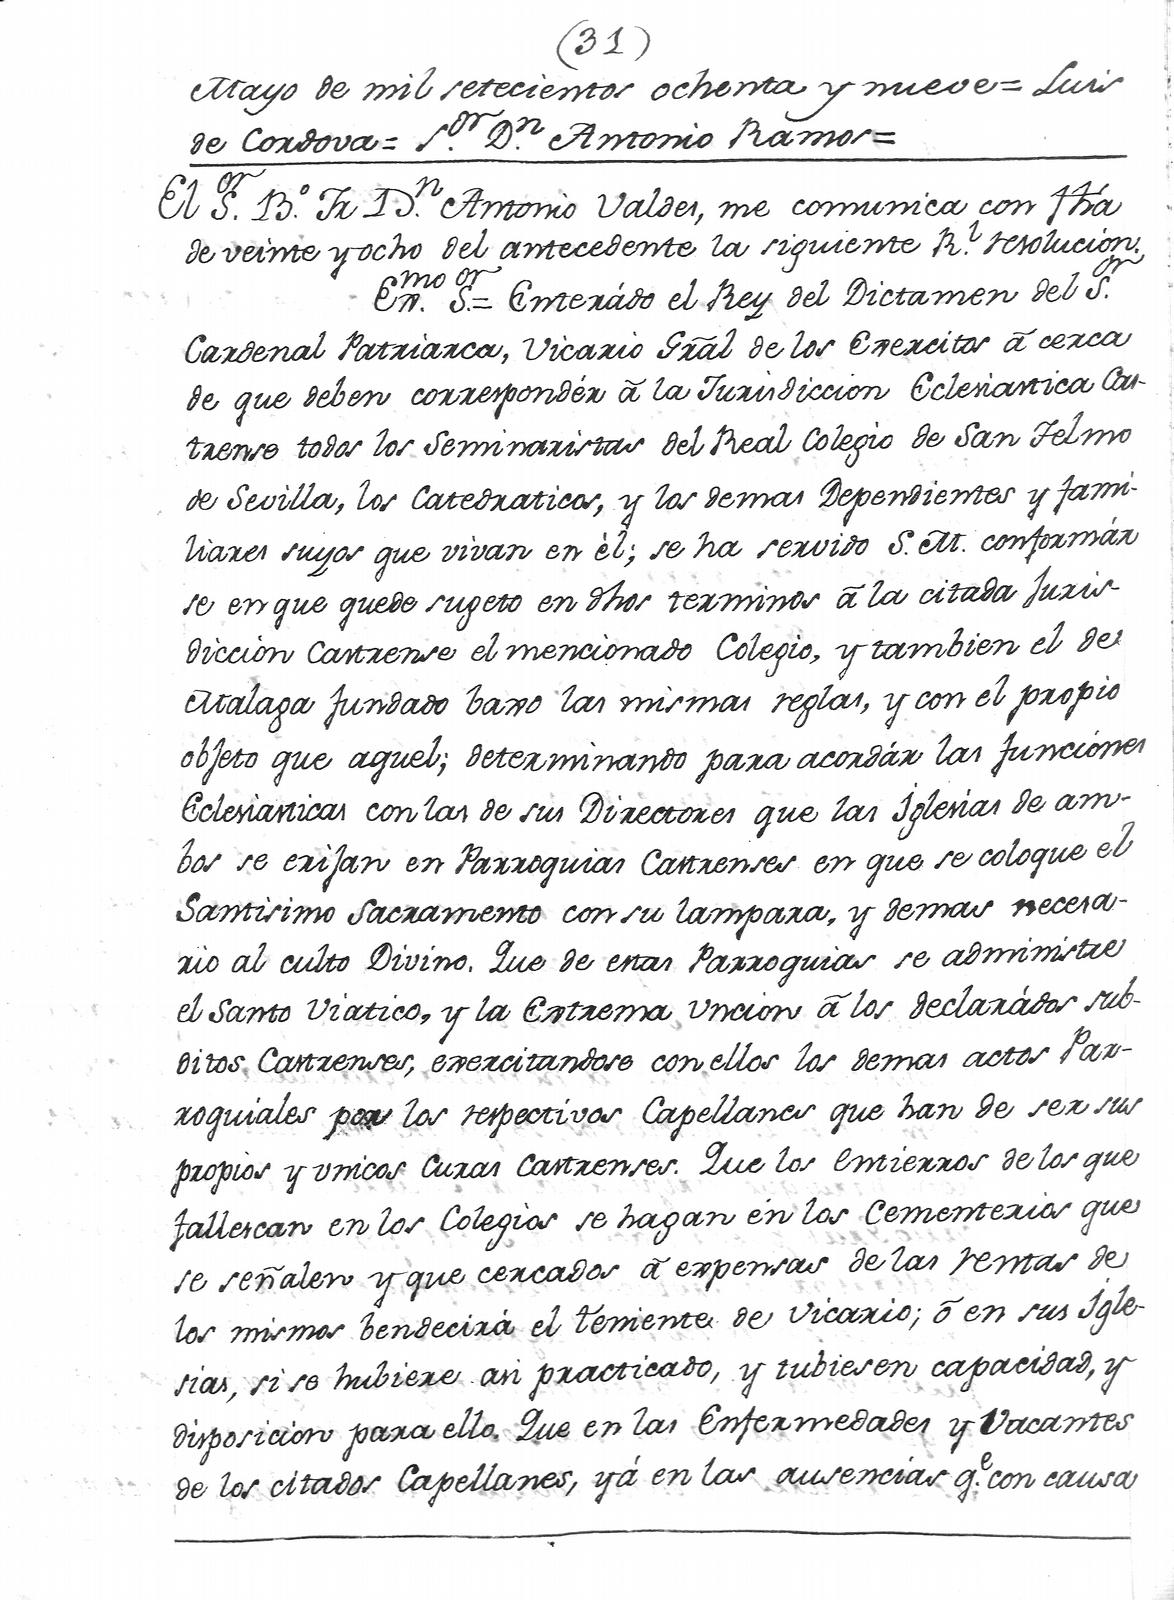 (31)
Mayo de mil setecientos ochenta y nueve= Luis
de Cordova= S.or D.n Antonio Ramos=
El S.or B.o Fr. D.n Antonio Valdes, me comunica con fha
de veinte y ocho del antecedente la siguiente R.l resolucion.
Ex.mo S.or= Enterádo el Rey del Dictamen del S.or
Cardenal Patriarca, Vicario Grāl de los Exercitos ā cerca
de que deben correspondér ā la Jurisdiccion Eclesiastica Cas-
trense todos los Seminaristas del Real Colegio de San Telmo
de Sevilla, los Catedraticos, y los demas Dependientes y fami-
liares suyos que vivan en él; se ha servido S. M. conformár
se en que quede sugeto en dhos terminos ā la citada Juris-
diccion Castrense el mencionado Colegio, y tambien el de
Malaga fundado baxo las mismas reglas, y con el propio
objeto que aquel; determinando para acordár las funciones
Eclesiasticas con las de sus Directores que las Iglesias de am-
bos se erijan en Parroquias Castrenses en que se coloque el
Santisimo Sacramento con su lampara, y demas necesa-
rio al culto Divino. Que de estas Parroquias se administre
el Santo Viatico, y la Extrema Uncion ā los declarádos sub-
ditos Castrenses, exercitandose con ellos los demas actos Par-
roquiales por los respectivos Capellanes que han de ser sus
propios y vnicos Curas Castrenses. Que los Entierros de los que
fallescan en los Colegios se hagan en los Cementerios que
se señalen y que cercados ā expensas de las rentas de
los mismos bendecirá el teniente de Vicario; ō en sus Igle-
sias, si se hubiere asi practicado, y tubiesen capacidad, y
disposicion para ello. Que en las Enfermedades y Vacantes
de los citados Capellanes, yá en las ausencias q.e con causa